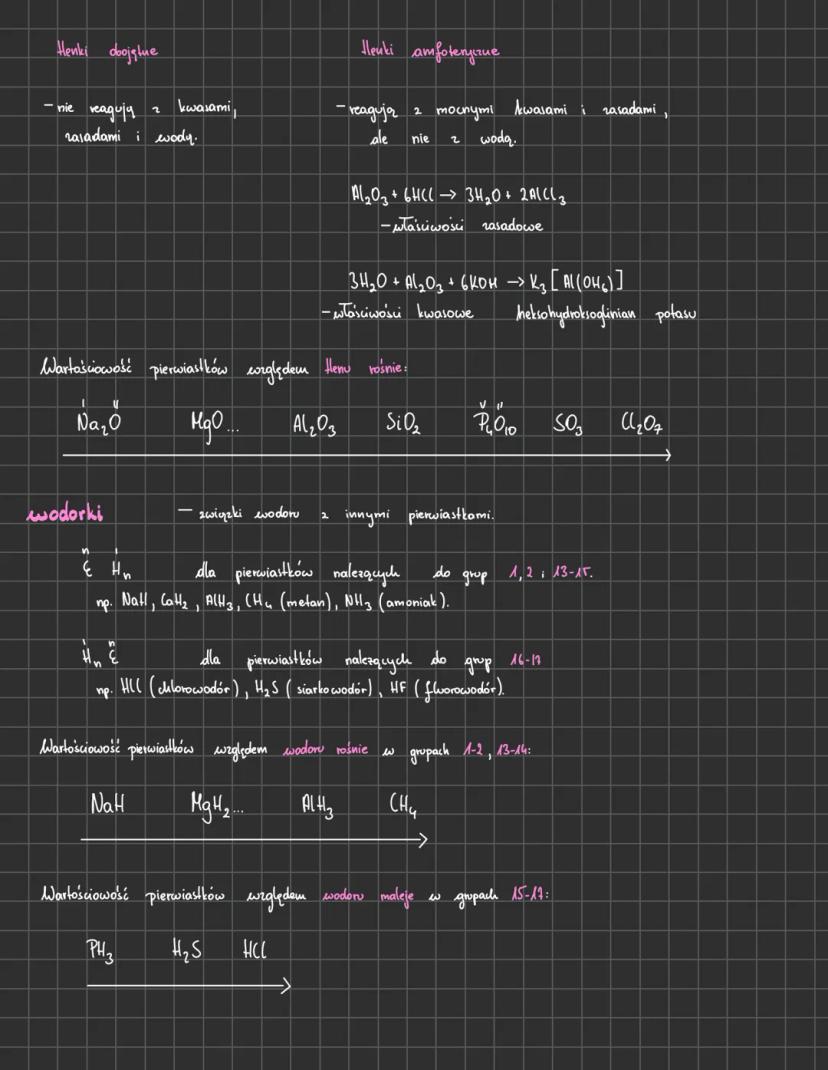 tlenki obojętne
tlenki amfoteryczne
- nie reagują z kwasami,
zasadami i wodą.
- reagują z mocnymi kwasami i zasadami,
ale nie z wodą.
Al₂O₃ + 6HCl → 3H₂O + 2AlCl₃
- właściwości zasadowe
3H₂O + Al₂O₃ + 6KOH → K₃[Al(OH₆)]
- właściwości kwasowe heksohydroksoglinian potasu
Wartościowość pierwiastków względem tlenu rośnie:
I II V II
Na₂O MgO... Al₂O₃ SiO₂ P₄O₁₀ SO₃ Cl₂O₇
wodorki - związki wodoru z innymi pierwiastkami.
n I
E Hₙ dla pierwiastków należących do grup 1, 2 i 13-15.
np. NaH, CaH₂, AlH₃, CH₄ (metan), NH₃ (amoniak).
I n
Hₙ E dla pierwiastków należących do grup 16-17
np. HCl (chlorowodór), H₂S (siarkowodór), HF (fluorowodór).
Wartościowość pierwiastków względem wodoru rośnie w grupach 1-2, 13-14:
NaH MgH₂... AlH₃ CH₄
Wartościowość pierwiastków względem wodoru maleje w grupach 15-17:
PH₃ H₂S HCl